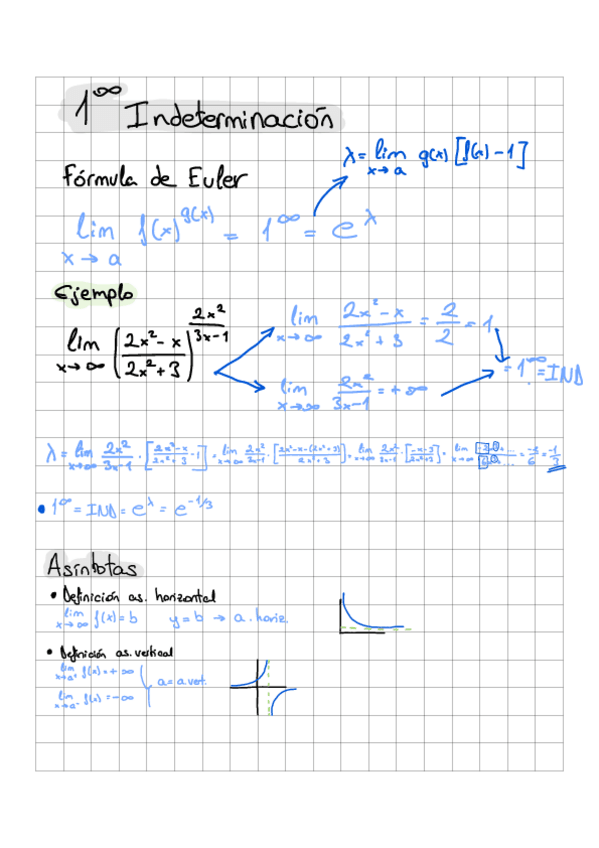 1^∞ Indeterminación
λ = lim x→a g(x) [f(x) - 1]
Fórmula de Euler
lim x→a f(x)^g(x) = 1^∞ = e^λ
Ejemplo
lim x→∞ ((2x² - x)/(2x² + 3))^(2x²/(3x-1))
lim x→∞ (2x² - x)/(2x² + 3) = 2/2 = 1
lim x→∞ 2x²/(3x-1) = +∞
= 1^∞ = IND
λ = lim x→∞ 2x²/(3x-1) · [(2x²-x)/(2x²+3) - 1] = lim x→∞ 2x²/(3x-1) · [(2x²-x-(2x²+3))/(2x²+3)] = lim x→∞ 2x²/(3x-1) · [(-x-3)/(2x²+3)] = lim x→∞ = -2/6 = -1/3
• 1^∞ = IND = e^λ = e^(-1/3)
Asíntotas
• Definición as. horizontal
lim x→∞ f(x) = b y = b → a. horiz.
• Definición as. vertical
lim x→a⁺ f(x) = +∞
a = a vert.
lim x→a⁻ f(x) = -∞